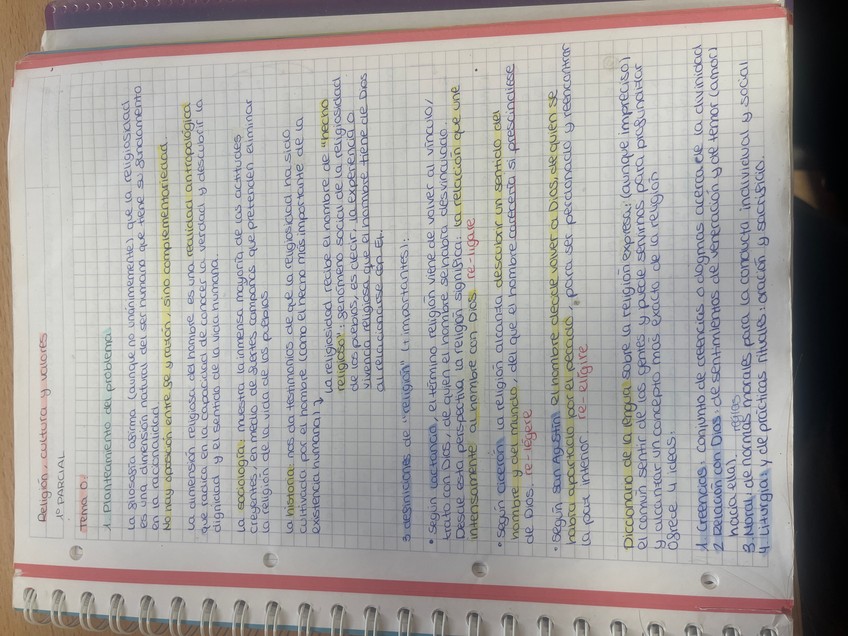 Religión, cultura y valores
1º PARCIAL
Tema 0.
1. Planteamiento del problema
La filosofía afirma (aunque no unánimemente) que la religiosidad
es una dimensión natural del ser humano que tiene su fundamento
en la racionalidad.
No hay oposición entre fe y razón, sino complementariedad.
La dimensión religiosa del hombre es una realidad antropológica
que radica en la capacidad de conocer la verdad y descubrir la
dignidad y el sentido de la vida humana.
La sociología: muestra la inmensa mayoría de las actitudes
creyentes, en medio de fuertes campañas que pretenden eliminar
la religión de la vida de los pueblos
La historia: nos da testimonios de que la religiosidad ha sido
cultivada por el hombre como el hecho más importante de la
existencia humana) ↴
La religiosidad recibe el nombre de "hecho
religioso": fenómeno social de la religiosidad
de los pueblos, es decir, la experiencia o
vivencia religiosa que el hombre tiene de Dios
al relacionarse con Él.
3 definiciones de "religión" (+ importantes):
• Según Lactancio, el término religión viene de volver al vínculo,
trato con Dios, de quien el hombre se había desvinculado.
Desde esta perspectiva la religión significa: la relación que une
intensamente al hombre con Dios. re-ligare
• Según Cicerón, la religión alcanza descubrir un sentido del
hombre y del mundo, del que el hombre carecería si prescindiese
de Dios. re-légere
• Según San Agustín, el hombre decide volver a Dios, de quien se
había apartado por el pecado, para ser perdonado y reencontrar
la paz interior re-elígire
Diccionario de la lengua sobre la religión expresa: (aunque impreciso)
el común sentir de las gentes y puede servirnos para profundizar
y alcanzar un concepto más exacto de la religión
Ofrece 4 ideas:
1. Creencias: conjunto de creencias o dogmas acerca de la divinidad
2. Relación con Dios: de sentimientos de veneración y de temor (amor)
hacia ella)
reglas
3. Moral: de normas morales para la conducta individual y social
4. Liturgia: y de prácticas rituales: oración y sacrificio.